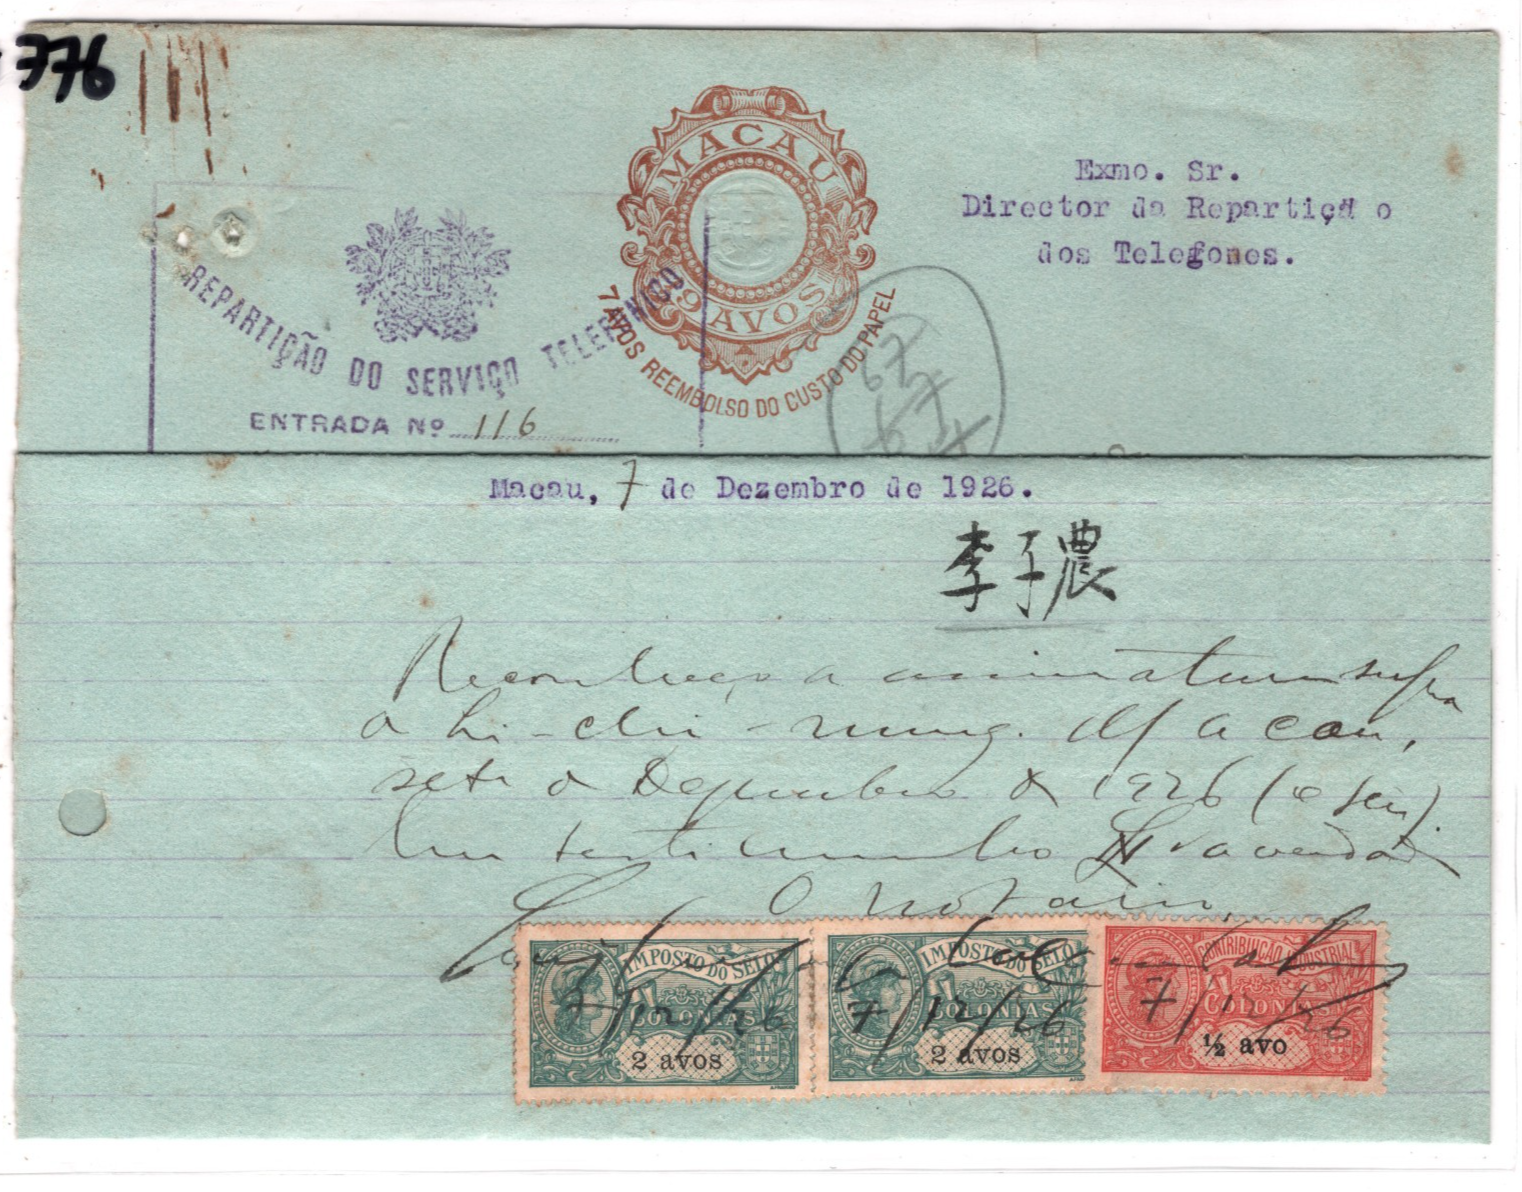 776
MACAU
9 AVOS
7 AVOS REEMBOLSO DO CUSTO DO PAPEL
Exmo. Sr.
Director da Repartiçã o
dos Telefones.
REPARTIÇÃO DO SERVIÇO TELEFONICO
ENTRADA Nº 116
Macau, 7 de Dezembro de 1926.
李子農
Reconheço a assinatura supra
de Li-chi-nung. Macau,
sete de Dezembro de 1926 (e seis).
Em testemunho da verdade
O notario,
IMPOSTO DO SELO
COLONIAS
2 avos
7/12/26
IMPOSTO DO SELO
COLONIAS
2 avos
7/12/26
CONTRIBUIÇÃO INDUSTRIAL
COLONIAS
½ avo
7/12/26